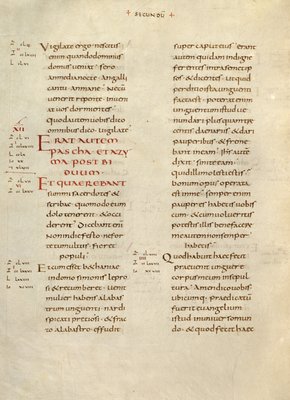 + SECUNDU +
Uigilate ergo · nescitis
enim quando dominus
domus ueniat · sero
an media nocte · an galli
cantu · an mane · Ne cum
uenerit repente · inueni
at uos dormientes
quod autem uobis dico
omnibus dico · uigilate
XII
ERAT AUTEM
PASCHA ET AZY
MA POST BI
DUUM
ET QUAEREBANT
summi sacerdotes &
scribae · quomodo eum
dolo tenerent · & occi
derent · Dicebant eni
non in die festo · ne for
te tumultus · fieret
populi
Et cum esset bethaniae
in domo simonis lepro
si & recumberet · uenit
mulier habens alabas
trum unguenti · nardi
spicati pretiosi · & frac
to alabastro · effudit
super caput eius · erant
autem quidam indigne
ferentes intra semetip
sos · & dicentes · ut quid
perditio ista unguenti
facta est · poterat enim
unguentum istud uenu
ndari plus quam tre
centis denariis · & dari
pauperibus · & freme
bant in eam · ihs autem
dixit · sinite eam
quid illi molesti estis
bonum opus operata
est in me · semper enim
pauperes habetis uobis
cum · & cum uolueritis
potestis illis benefacere
me autem non semper
habetis
Quod habuit haec fecit
praeuenit unguere
corpus meum in sepul
tura · Amen dico uobis
ubicumq· praedicatu
fuerit euangelium
istud in uniuerso mun
do · & quod fecit haec